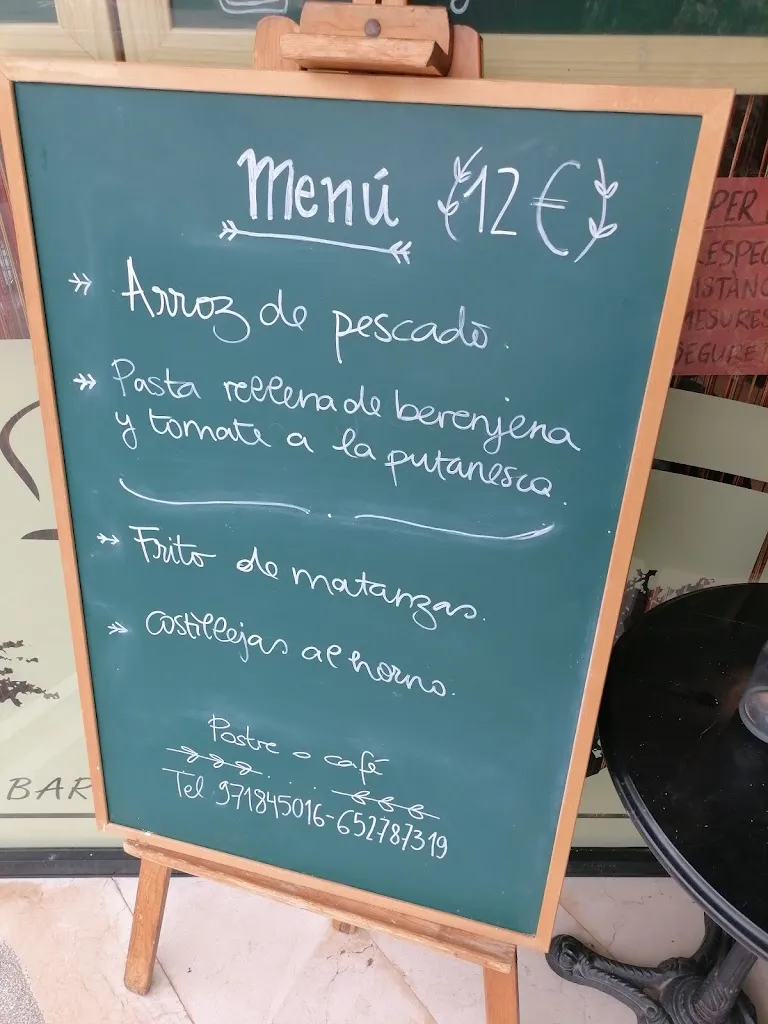 Menú 12€
Arroz de pescado.
Pasta rellena de berenjena
y tomate a la putanesca.
Frito de matanzas.
Costillejas al horno.
Postre o café
Tel 971845016-652787319
BAR
PER
DISTÀNC
MESURES
SEGURET